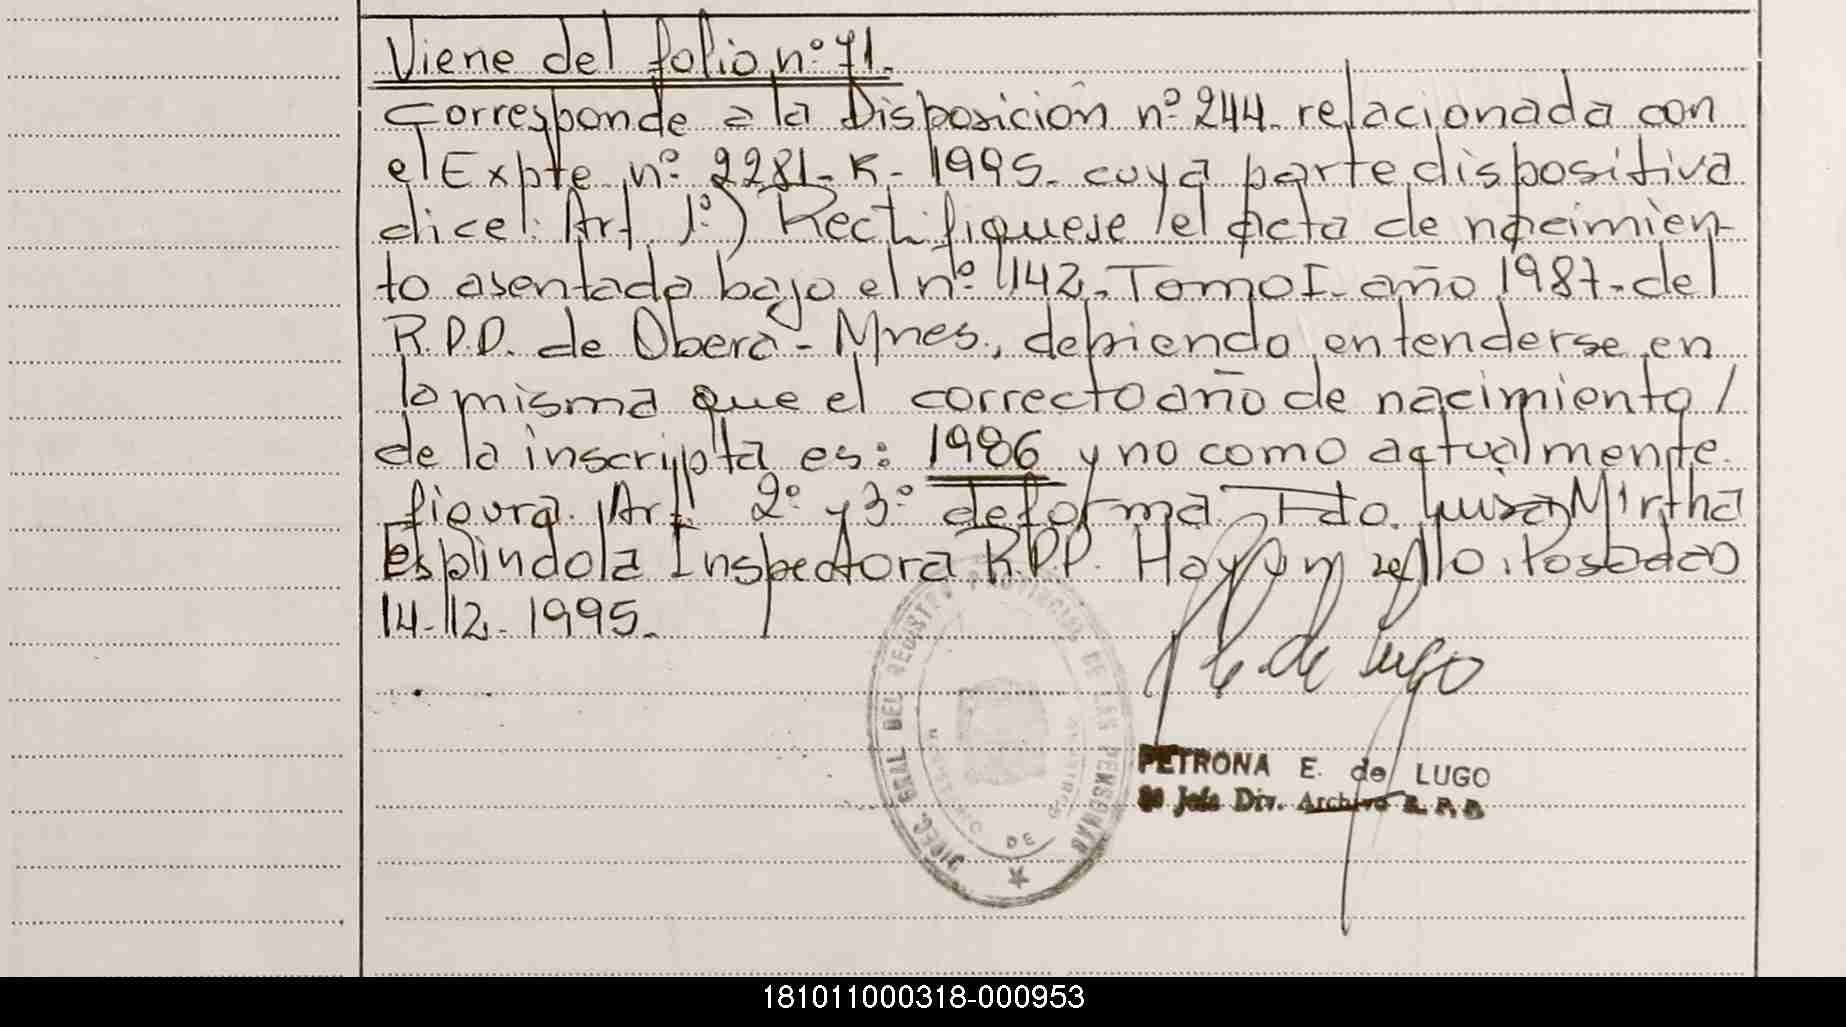 Viene del folio nº 71.
Corresponde a la Disposición nº 244. relacionada con
el Expte nº 2281-K-1995. cuya parte dispositiva
dice: Art 1º) Rectifiquese el acta de nacimien-
to asentada bajo el nº 1142. Tomo I. año 1987. del
R.P.P. de Obera - Mnes., debiendo entenderse en
la misma que el correcto año de nacimiento /
de la inscripta es: 1986 y no como actualmente
figura. Art 2º y 3º de forma. Fdo. Luisa Mirtha
Espindola Inspectora R.P.P. Hay un sello. Posadas
14-12-1995.
E. de Lugo
DIREC. GRAL DEL REGISTRO PROVINCIAL DE LAS PERSONAS
MINISTERIO DE GOBIERNO
PETRONA E. de LUGO
Jefa Div. Archivo R. P. P.
181011000318-000953